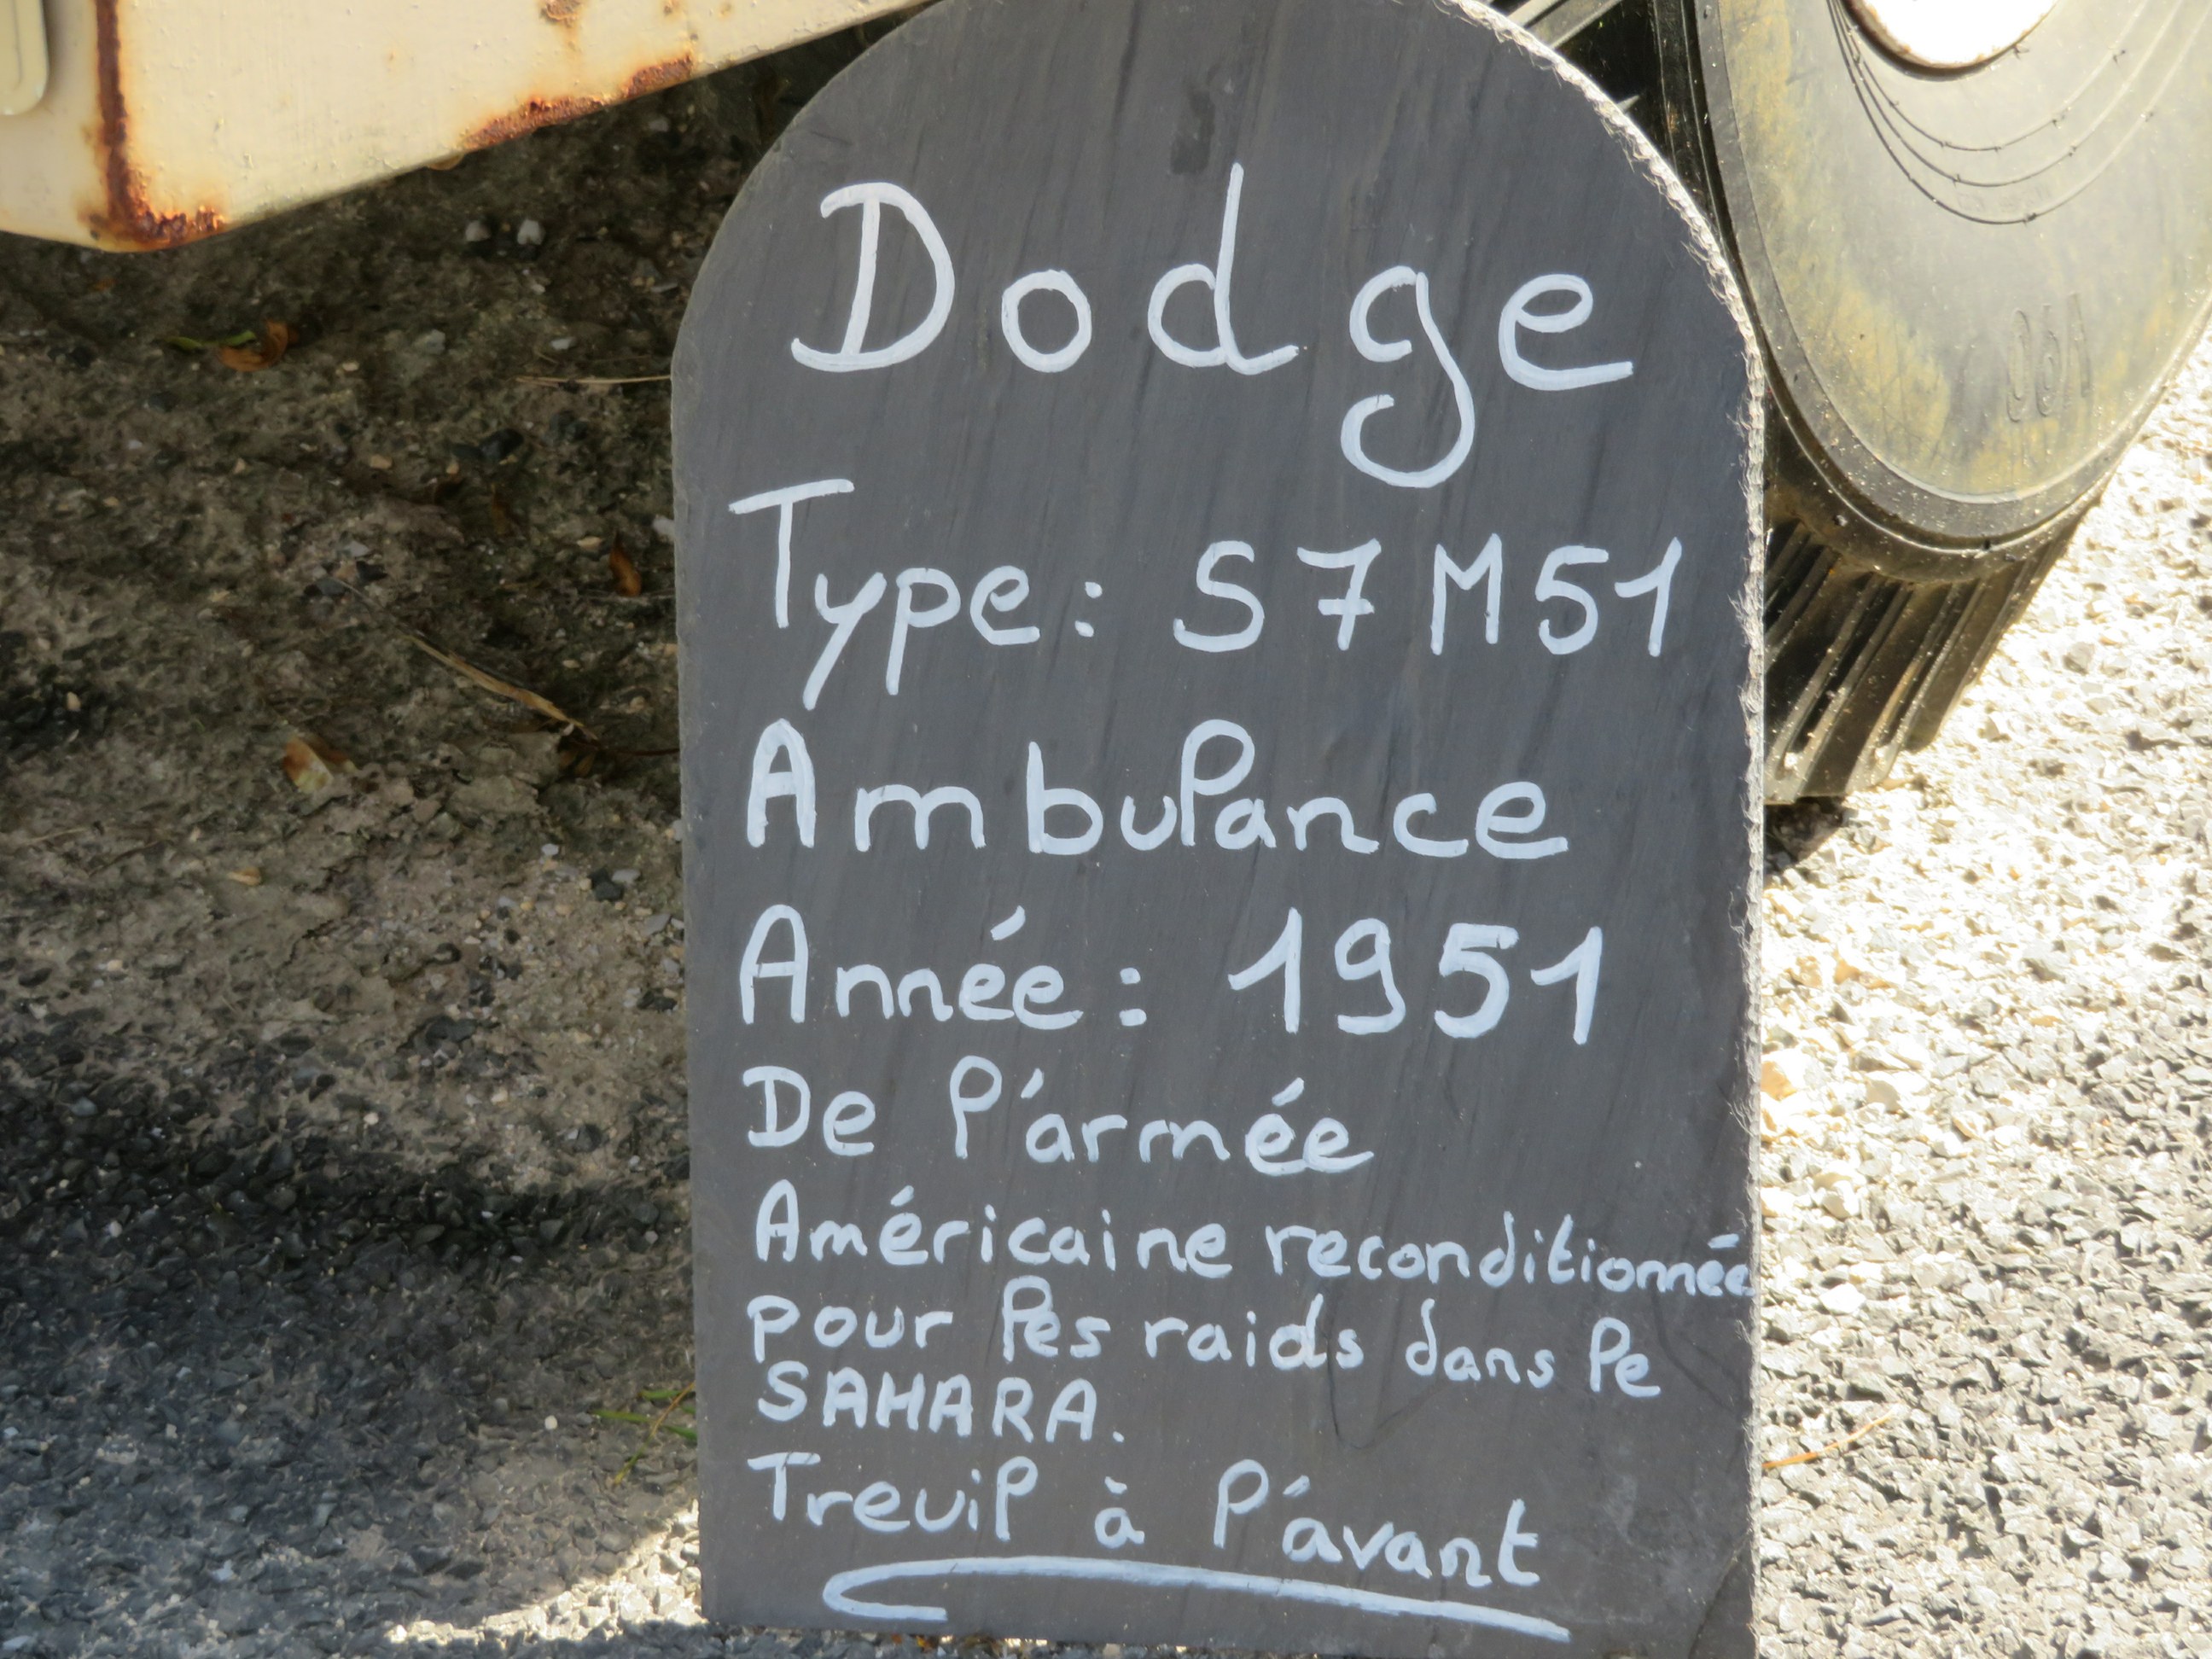 Dodge
Type: S7M51
Ambulance
Année: 1951
De l'armée
Américaine reconditionnée
pour les raids dans le
SAHARA.
Treuil à l'avant